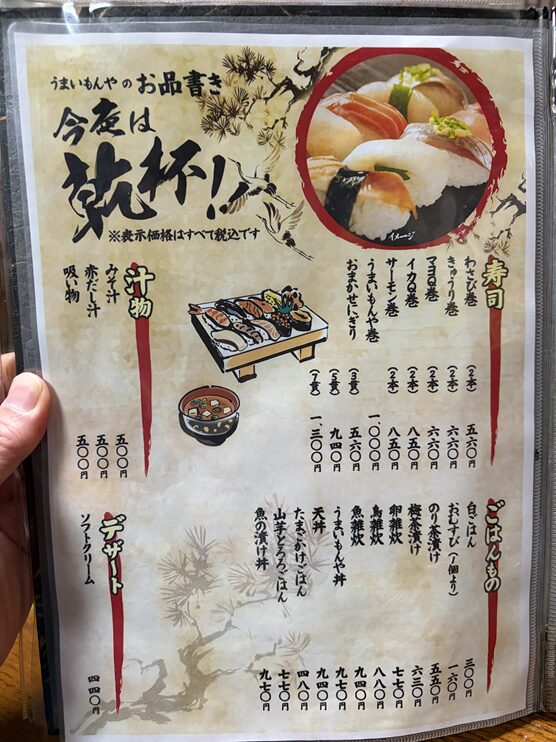 うまいもんや の お品書き
今夜は
乾杯!!
※表示価格はすべて税込です
イメージ
寿司
わさび巻 (2本) 五六〇円
きゅうり巻 (2本) 六六〇円
マヨQ巻 (2本) 六六〇円
イカQ巻 (2本) 八五〇円
サーモン巻 (2本) 八五〇円
うまいもんや巻 一、〇〇〇円
おまかせにぎり (3貫) 五六〇円
(5貫) 九四〇円
(7貫) 一、三〇〇円
汁物
みそ汁 五〇〇円
赤だし汁 五〇〇円
吸い物 五〇〇円
ごはんもの
白ごはん 三〇〇円
おむすび (1個より) 一六〇円
のり茶漬け 五五〇円
梅茶漬け 六三〇円
卵雑炊 七七〇円
鳥雑炊 八八〇円
魚雑炊 九四〇円
うまいもんや丼 九七〇円
天丼 九四〇円
たまごかけごはん 四八〇円
山芋とろろごはん 七七〇円
魚の漬け丼 九七〇円
デザート
ソフトクリーム 四四〇円